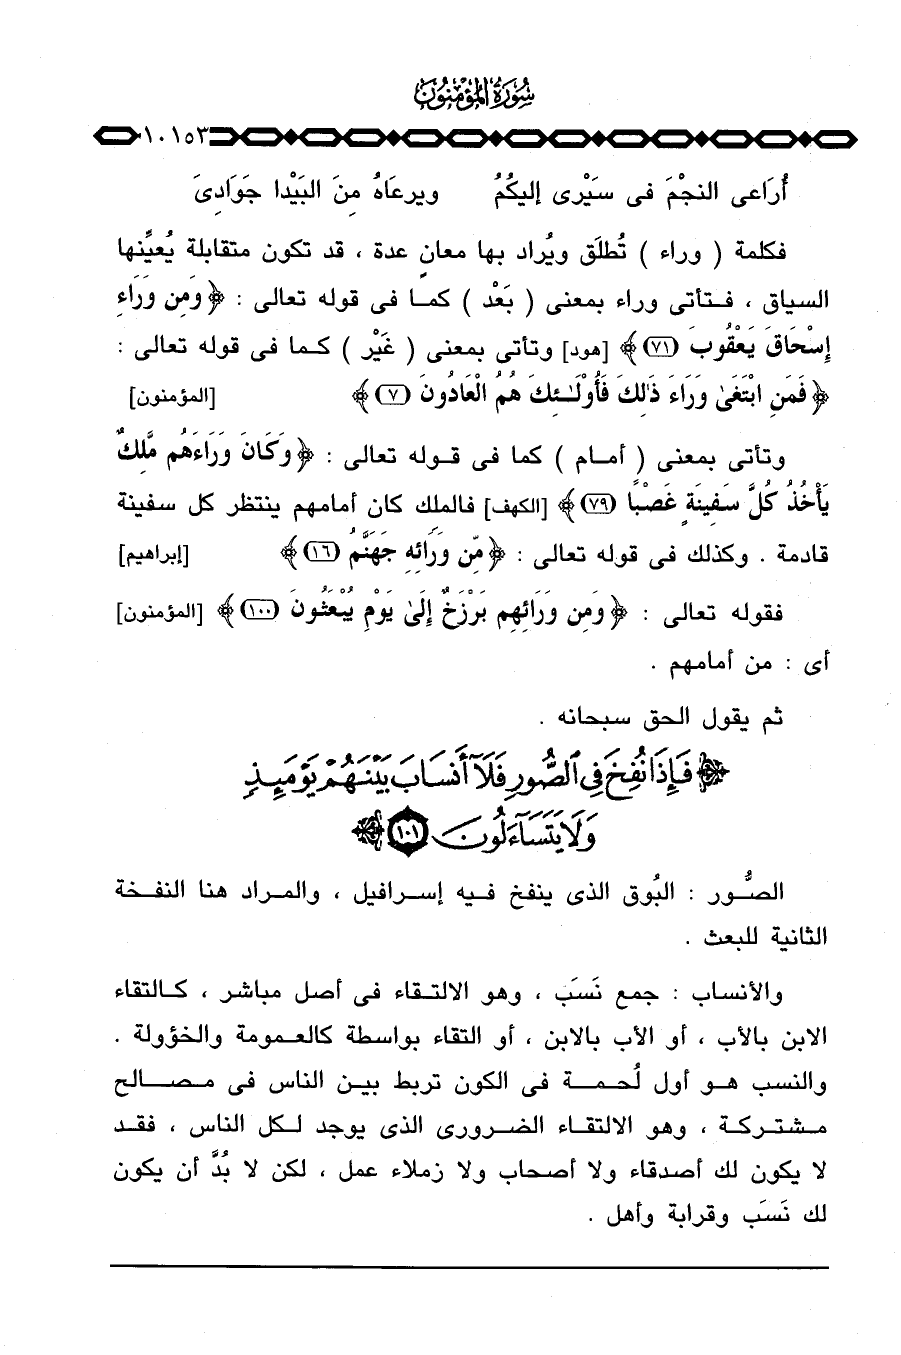 سُورَةُ المُؤْمِنُونَ
١٠١٥٣
أُرَاعى النجْمَ فى سَيْرى إليكُمُ ويرعَاهُ مِنَ البَيْدا جَوَادِىَ
فكلمة ( وراء ) تُطلَق ويُراد بها معانٍ عدة ، قد تكون متقابلة يُعيِّنها
السياق ، فتأتى وراء بمعنى ( بَعْد ) كما فى قوله تعالى : ﴿ وَمِن وَرَاءِ
إِسْحَاقَ يَعْقُوبَ (٧١) ﴾ [هود] وتأتى بمعنى ( غَيْر ) كما فى قوله تعالى :
﴿ فَمَنِ ابْتَغَىٰ وَرَاءَ ذَٰلِكَ فَأُوْلَـٰئِكَ هُمُ الْعَادُونَ (٧) ﴾ [المؤمنون]
وتأتى بمعنى ( أمام ) كما فى قوله تعالى : ﴿ وَكَانَ وَرَاءَهُم مَّلِكٌ
يَأْخُذُ كُلَّ سَفِينَةٍ غَصْبًا (٧٩) ﴾ [الكهف] فالملك كان أمامهم ينتظر كل سفينة
قادمة . وكذلك فى قوله تعالى : ﴿ مِّن وَرَائِهِ جَهَنَّمُ (١٦) ﴾ [إبراهيم]
فقوله تعالى : ﴿ وَمِن وَرَائِهِم بَرْزَخٌ إِلَىٰ يَوْمِ يُبْعَثُونَ (١٠٠) ﴾ [المؤمنون]
أى : من أمامهم .
ثم يقول الحق سبحانه .
﴿ فَإِذَا نُفِخَ فِى ٱلصُّورِ فَلَآ أَنسَابَ بَيْنَهُمْ يَوْمَئِذٍ
وَلَا يَتَسَآءَلُونَ ١٠١ ﴾
الصُّور : البُوق الذى ينفخ فيه إسرافيل ، والمراد هنا النفخة
الثانية للبعث .
والأنساب : جمع نَسَب ، وهو الالتقاء فى أصل مباشر ، كالتقاء
الابن بالأب ، أو الأب بالابن ، أو التقاء بواسطة كالعمومة والخؤولة .
والنسب هو أول لُحمة فى الكون تربط بين الناس فى مصالح
مشتركة ، وهو الالتقاء الضرورى الذى يوجد لكل الناس ، فقد
لا يكون لك أصدقاء ولا أصحاب ولا زملاء عمل ، لكن لا بُدَّ أن يكون
لك نَسَب وقرابة وأهل .